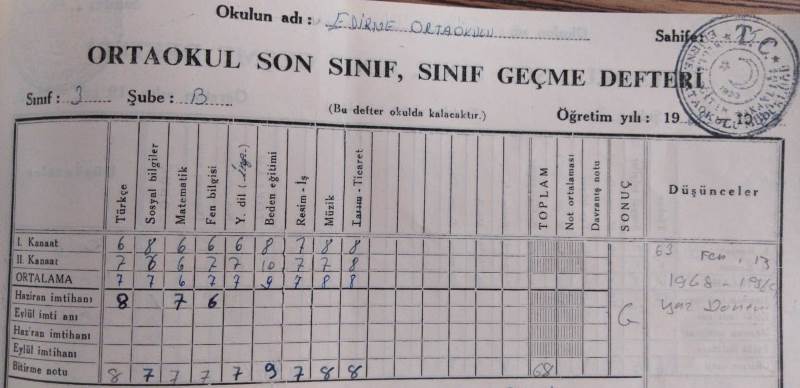 Okulun adı: EDİRNE ORTAOKULU
Sahife:
T. C.
ORTAOKUL SON SINIF, SINIF GEÇME DEFTERİ
Sınıf: 3 Şube: B
(Bu defter okulda kalacaktır.)
Öğretim yılı: 19
Türkçe Sosyal bilgiler Matematik Fen bilgisi Y. dil (İng.) Beden eğitimi Resim - İş Müzik Tarım - Ticaret TOPLAM Not ortalaması Davranış notu SONUÇ Düşünceler
I. Kanaat 6 8 6 6 6 8 7 8 8
II. Kanaat 7 6 6 7 7 10 7 7 8
ORTALAMA 7 7 6 7 7 9 7 8 8
Haziran imtihanı 8 7 6
Eylül imti anı
Haz'ran imtihanı
Eylül imtihanı
Bitirme notu 8 7 7 7 7 9 7 8 8 68
G
63 Fen
1968
Yaz